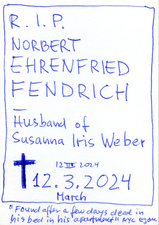 R. I. P.
NORBERT
EHRENFRIED
FENDRICH
—
Husband of
Susanna Iris Weber
12 III 2024
✝ 12. 3. 2024
March
* Found after a few days dead in
his bed in his apartment NYC